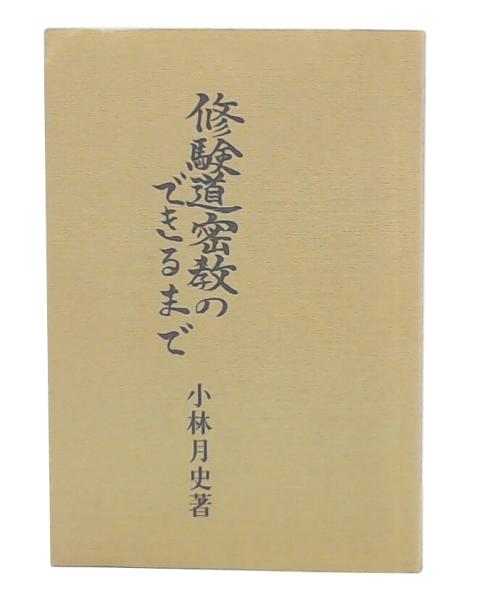 修験道密教の
できるまで
小林月史著